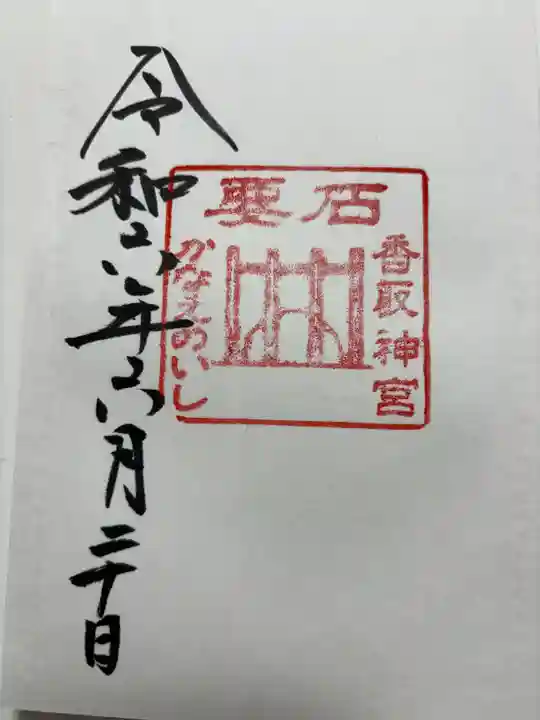 令和六年六月二十日
要石
香取神宮
かなめいし